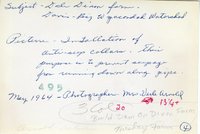 Subject - Del Dean farm.
Davis - Roy & Yacondal Watershed
Picture - Installation of
anti-seep collars. Their
purpose is to prevent seepage
from running down along pipe.
495
May, 1964 - Photographer - Mr. Dick Arnold
20
1374
Build Dam On Dean Farm